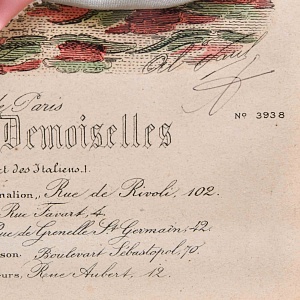 de Paris
Demoiselles
No 3938
des Italiens.)
nation,, Rue de Rivoli, 102.
Rue Favart, 4.
Rue de Grenelle St Germain, 42.
son. Boulevart Sébastopol, 70.
ours, Rue Aubert, 12.